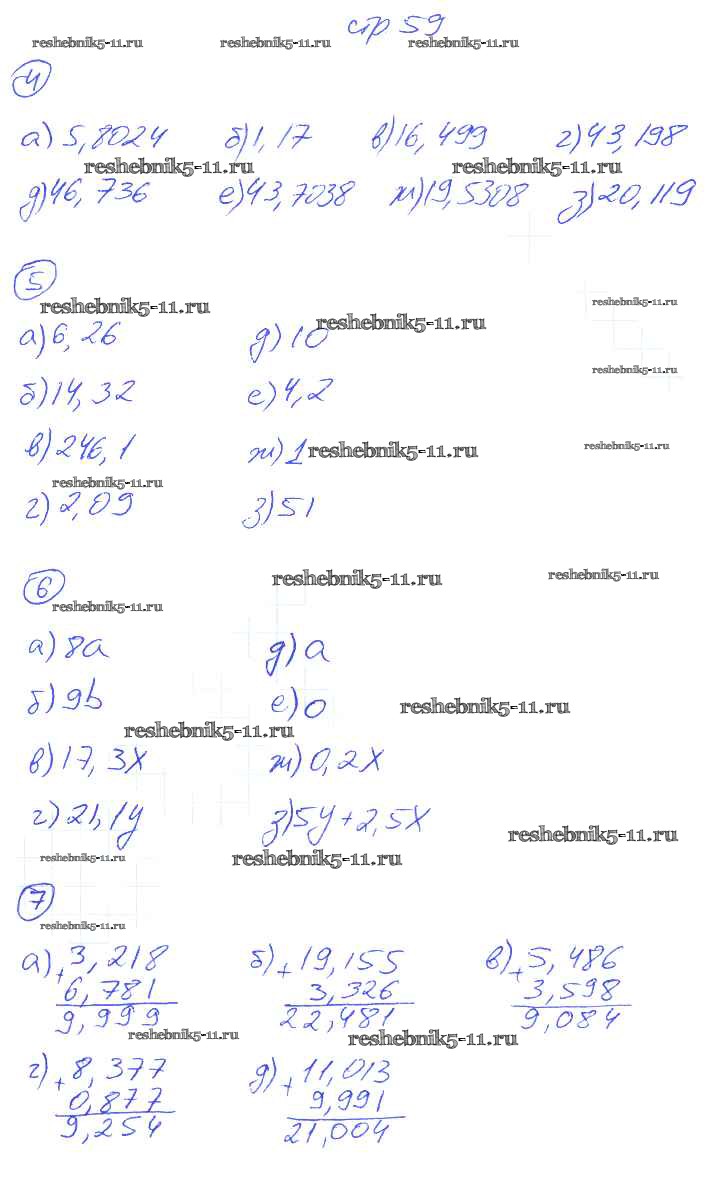 стр 59
reshebnik5-11.ru reshebnik5-11.ru reshebnik5-11.ru
4
а) 5,8024 б) 1,17 в) 16,499 г) 43,198
reshebnik5-11.ru reshebnik5-11.ru
д) 46,736 е) 43,7038 ж) 19,5308 з) 20,119
5
reshebnik5-11.ru reshebnik5-11.ru
а) 6,26 д) 10 reshebnik5-11.ru
reshebnik5-11.ru
б) 14,32 е) 4,2
в) 246,1 ж) 1 reshebnik5-11.ru reshebnik5-11.ru
reshebnik5-11.ru
г) 2,09 з) 51
6 reshebnik5-11.ru reshebnik5-11.ru
reshebnik5-11.ru
а) 8a д) a
б) 9b е) 0 reshebnik5-11.ru
reshebnik5-11.ru
в) 17,3x ж) 0,2x
г) 21,1y з) 5y+2,5x reshebnik5-11.ru
reshebnik5-11.ru reshebnik5-11.ru
7
reshebnik5-11.ru
а) + 3,218 б) + 19,155 в) + 5,486
6,781 3,326 3,598
9,999 22,481 9,084
reshebnik5-11.ru reshebnik5-11.ru
г) + 8,377 д) + 11,013
0,877 9,991
9,254 21,004